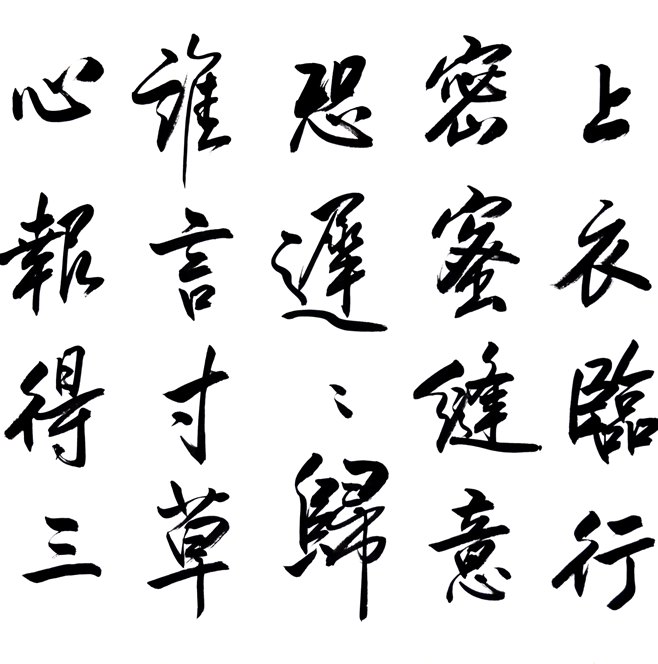 上衣臨行
密蜜縫意
恐遲〻歸
誰言寸草
心報得三